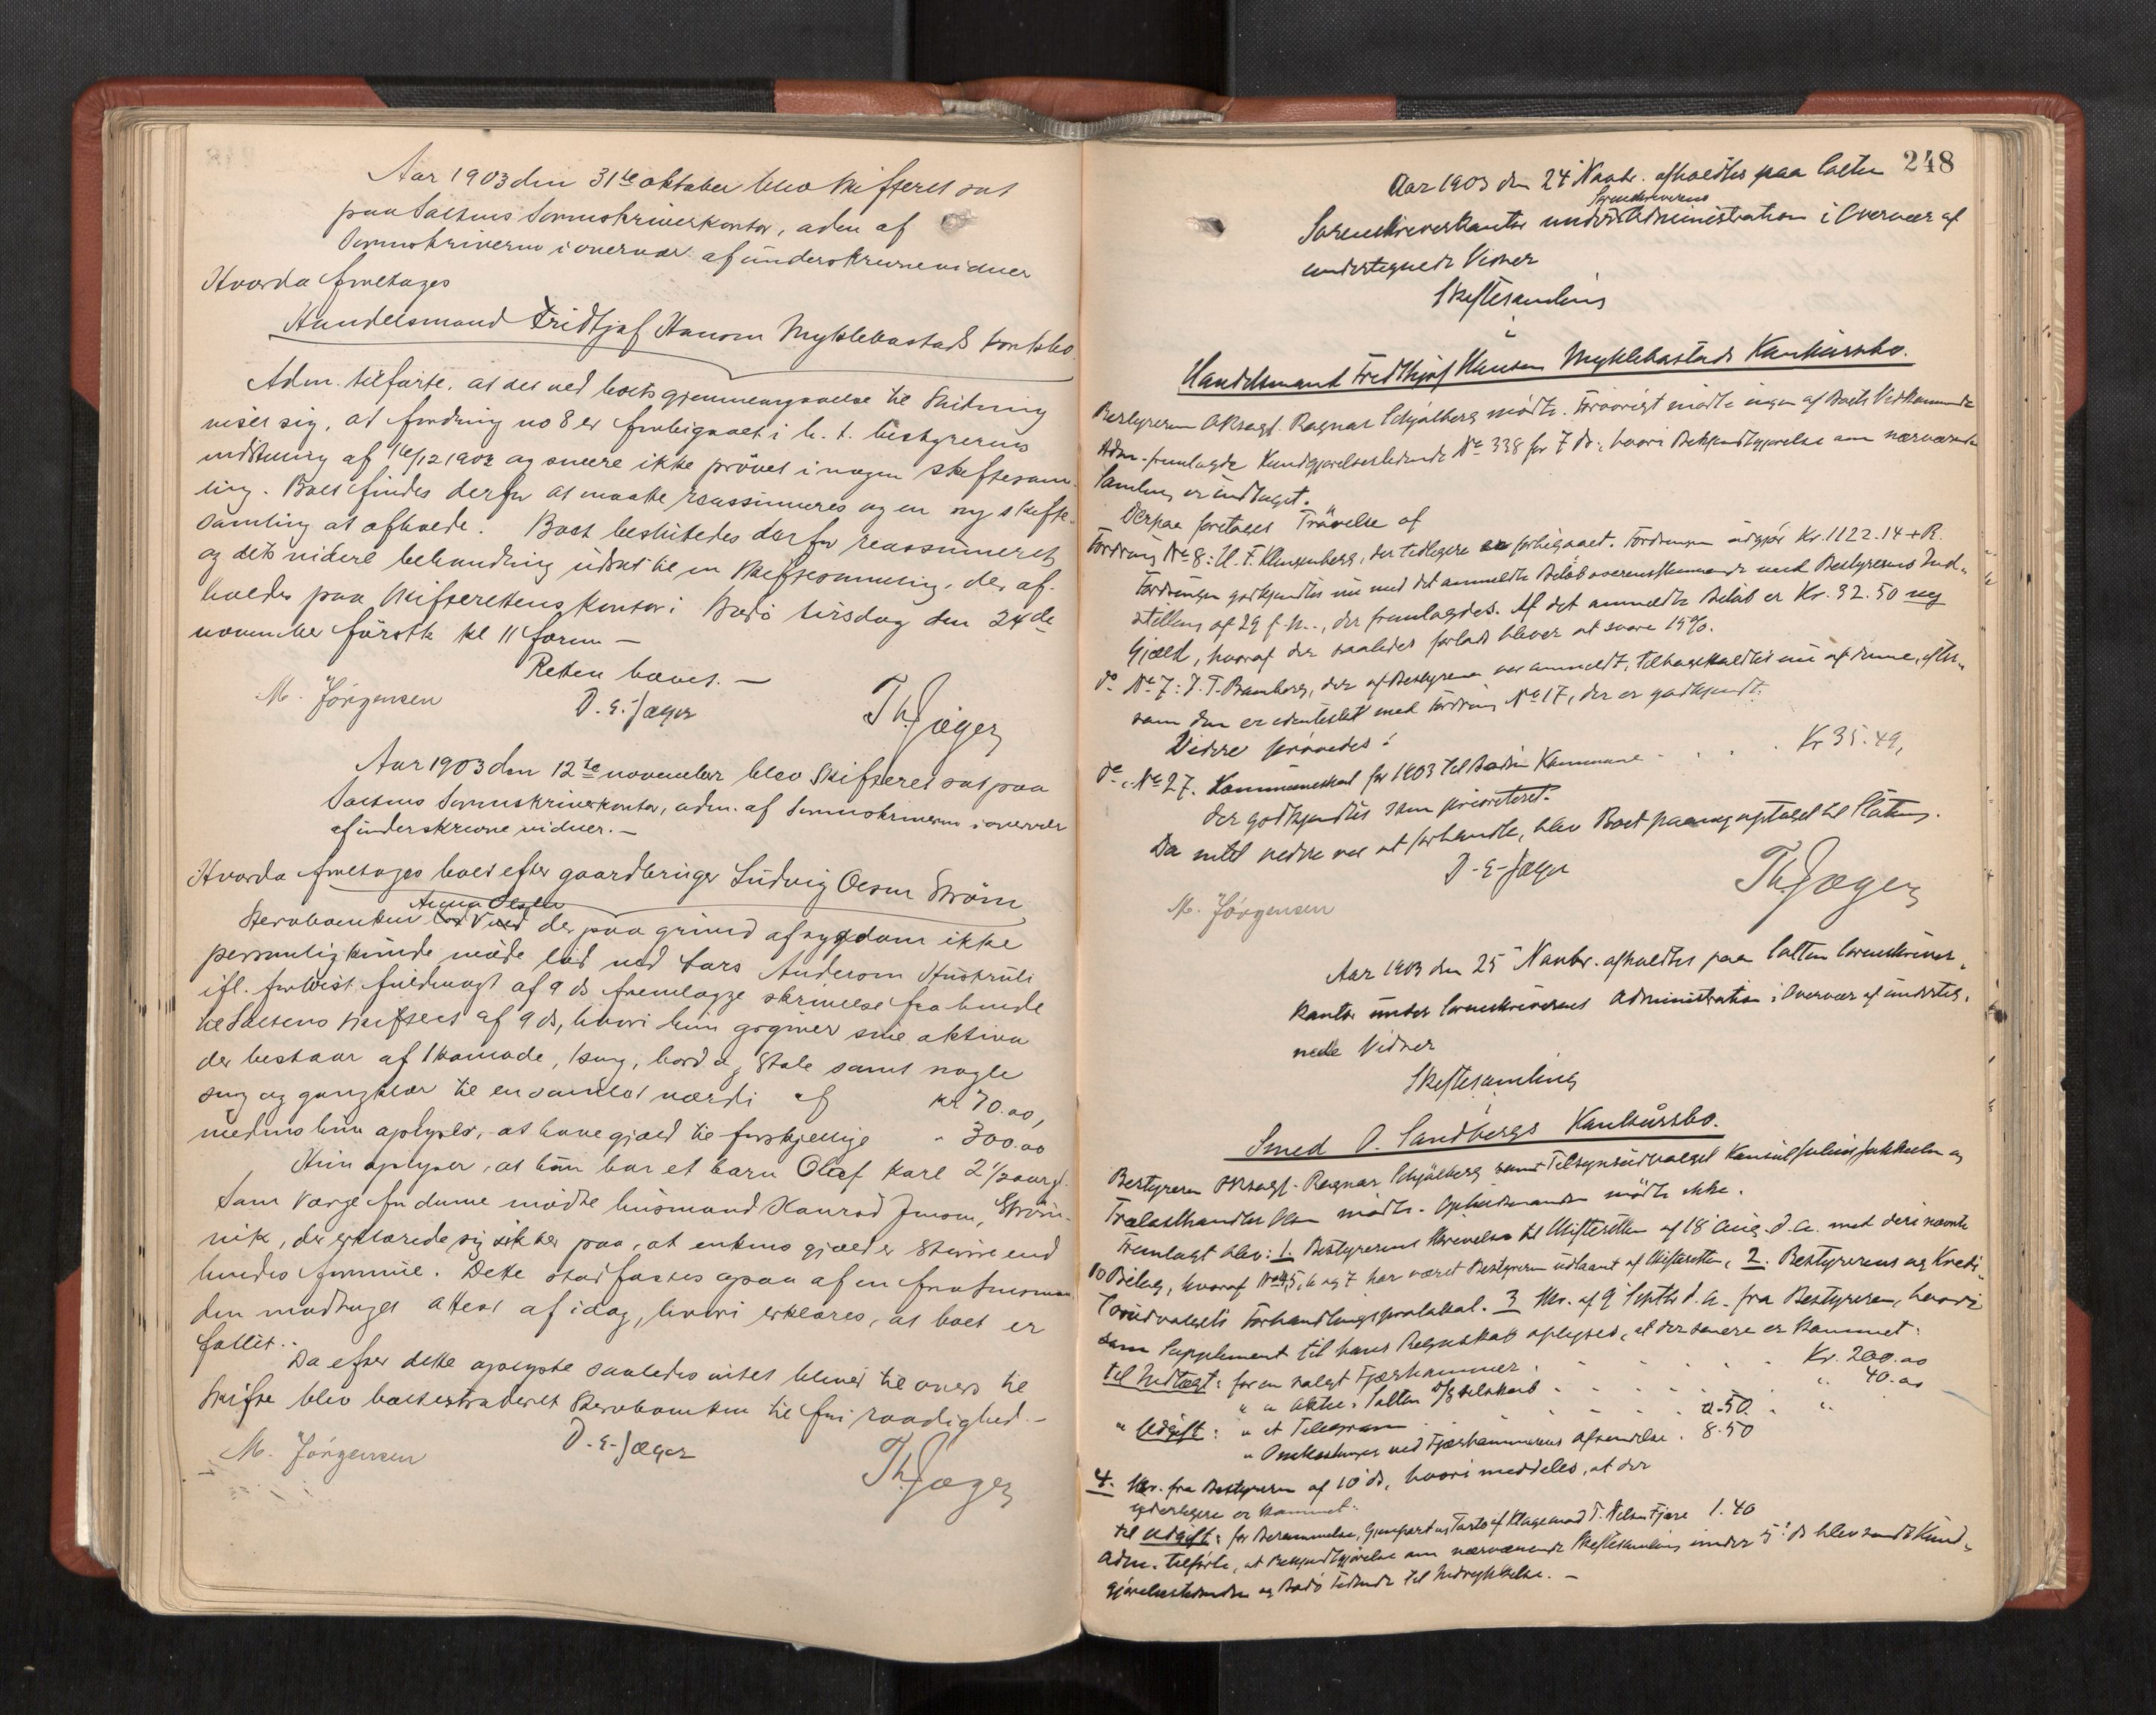 Aar 1903 den 31te oktober blev skifteret sat
paa Saltens Sorenskriverkontor, adm. af
Sorenskriveren i overvær af underskrevne vidner
Hvorda foretages
Handelsmand Fridtjof Hansen Myklebostads konkbo.
Adm. tilførte, at det ved boets gjennemgaaelse til slutning
viser sig, at fordring no 8 er forbigaaet i h. t. bestyrerens
indstilling af 16/12 1902 og senere ikke prøvet i nogen skiftesam-
ling. Boet findes derfor at maatte reassumeres og en ny skifte-
samling at afholde. Boet besluttedes derfor reassumeret
og dets videre behandling udsat til en skiftesamling, der af-
holdes paa skifterettens kontor i Bodø tirsdag den 24de
november førstk kl 11 form. —
Retten hævet. —
M. Jörgensen D. E. Jæger Th. Jæger
Aar 1903 den 12te november blev Skifteret sat paa
Saltens Sorenskriverkontor, adm. af Sorenskriveren i overvær
af underskrevne vidner. —
Hvorda foretages boet efter gaardbruger Ludvig Olsen Ström
Anna Olsen
Stervboenken der paa grund af sygdom ikke
personlig kunde møde lod ved Lars Andersen
ifl. forevist fuldmagt af 9 ds fremlægge skrivelse fra hende
til Saltens skifteret af 9 ds, hvori hun opgiver sine aktiva
der bestaar af 1 komode, 1 seng, bord og Stole samt nogle
seng og gangklær til en samlet værdi af kr 70.00,
medens hun oplyses, at have gjæld til forskjellige " 300.00
Hun oplyser, at hun har et barn Olaf Karl 2 1/2 aar gl.
Som Værge for dennne mødte husmand Konrad Jensen, Ström-
vik, der erklærede sig sikker paa, at enkens gjæld er större end
hendes formue. Dette stadfæstes ogsaa af en fra lensman-
den modtaget attest af idag, hvori erklæres, at boet er
fallit. -
Da efter dette oplyste saaledes intet bliver til overs til
Skifte blev boet extraderet Stervboenken til fri raadighed. —
M. Jörgensen D. E. Jæger Th. Jæger
248
Aar 1903 den 24 Novbr. afholdtes paa Salten
Sorenskriverens
Sorenskriverkontor under Administration i Overvær af
undertegnede Vidner
Skiftesamling
i
Handelsmand Fridthjof Hansen Myklebostads Konkursbo.
Bestyreren ORsagf. Ragnar Schjølberg mødte. Forøvrigt mødte ingen af Boets Vedkommende
Adm. fremlagde Kundgjørelsestidende No 338 for 7 ds., hvori Bekjendtgjørelse om nærværende
Samling er indtaget.
Derpaa foretoges Prövelse af
Fordring No 8: H. F. Klingenberg, der tidligere er forbigaaet. Fordringen udgjör Kr. 1122.14 + R.
Fordringen godkjendtes nu med det anmeldte Beløb overensstemmende med Bestyrerens Ind-
stilling af 29 f. M., der fremlagdes. Af det anmeldte Beløb er Kr. 32.50 ny
Gjæld, hvoraf der saaledes forlods bliver at svare 15%.
do No 7: J. T. Bamberg, der af Bestyreren var anmeldt, tilbagekaldtes nu af denne, efter-
som den er identisk med Fordring No 17, der er godkjendt.
Videre prövedes:
do No 27. Kommuneskat for 1903 til Bodin Kommune . . . Kr 35.49,
der godkjendtes som prioriteret.
Da intet videre var at forhandle, blev Boet paany optaget til Slutning.
D. E. Jæger
M. Jörgensen Th. Jæger
Aar 1903 den 25 Novbr. afholdtes paa Salten Sorenskriver-
kontor under Sorenskriverens Administration i Overvær af underteg-
nede Vidner
Skiftesamling
i
Smed O. Sandbergs Konkursbo.
Bestyreren ORsagf. Ragnar Schjølberg samt Tilsynsudvalget Konsul Julius Jakhelln og
Trælasthandler Olsen mødte. Opbudsmanden mødte ikke.
Fremlagt blev: 1. Bestyrerens Skrivelse til Skifteretten af 18 Aug. d. A. med deri nævnte
10 Bilag, hvoraf No 4, 5, 6 og 7 har været Bestyreren udlaant af Skifteretten, 2. Bestyrerens og Kredi-
torudvalgets Forhandlingsprotokol. 3 Skr. af 9 Septbr d. A. fra Bestyreren, hvori
som Supplement til hans Regnskab oplyses, at der senere er kommet:
til Indtægt: for en solgt Fjærhammer . . . Kr. 200.00
" " Aktie i Salten D/S selskab . . . " 40.00
" Udgift: " et Telegram . . . 0.50 . "
" Omkostninger ved Fjærhammerens Afsendelse . 8.50
4. Skr. fra Bestyreren af 10 ds, hvori meddeles, at der
yderligere er kommet:
til Udgift: for Berammelse, Gjenpart og Porto af Klagemaal T. Nilsen Fjære 1.40
Adm. tilførte, at Bekjendtgjørelse om nærværende Skiftesamling under 5. ds blev sendt Kund-
gjörelsestidende og Bodö Tidende til Indrykkelse. —